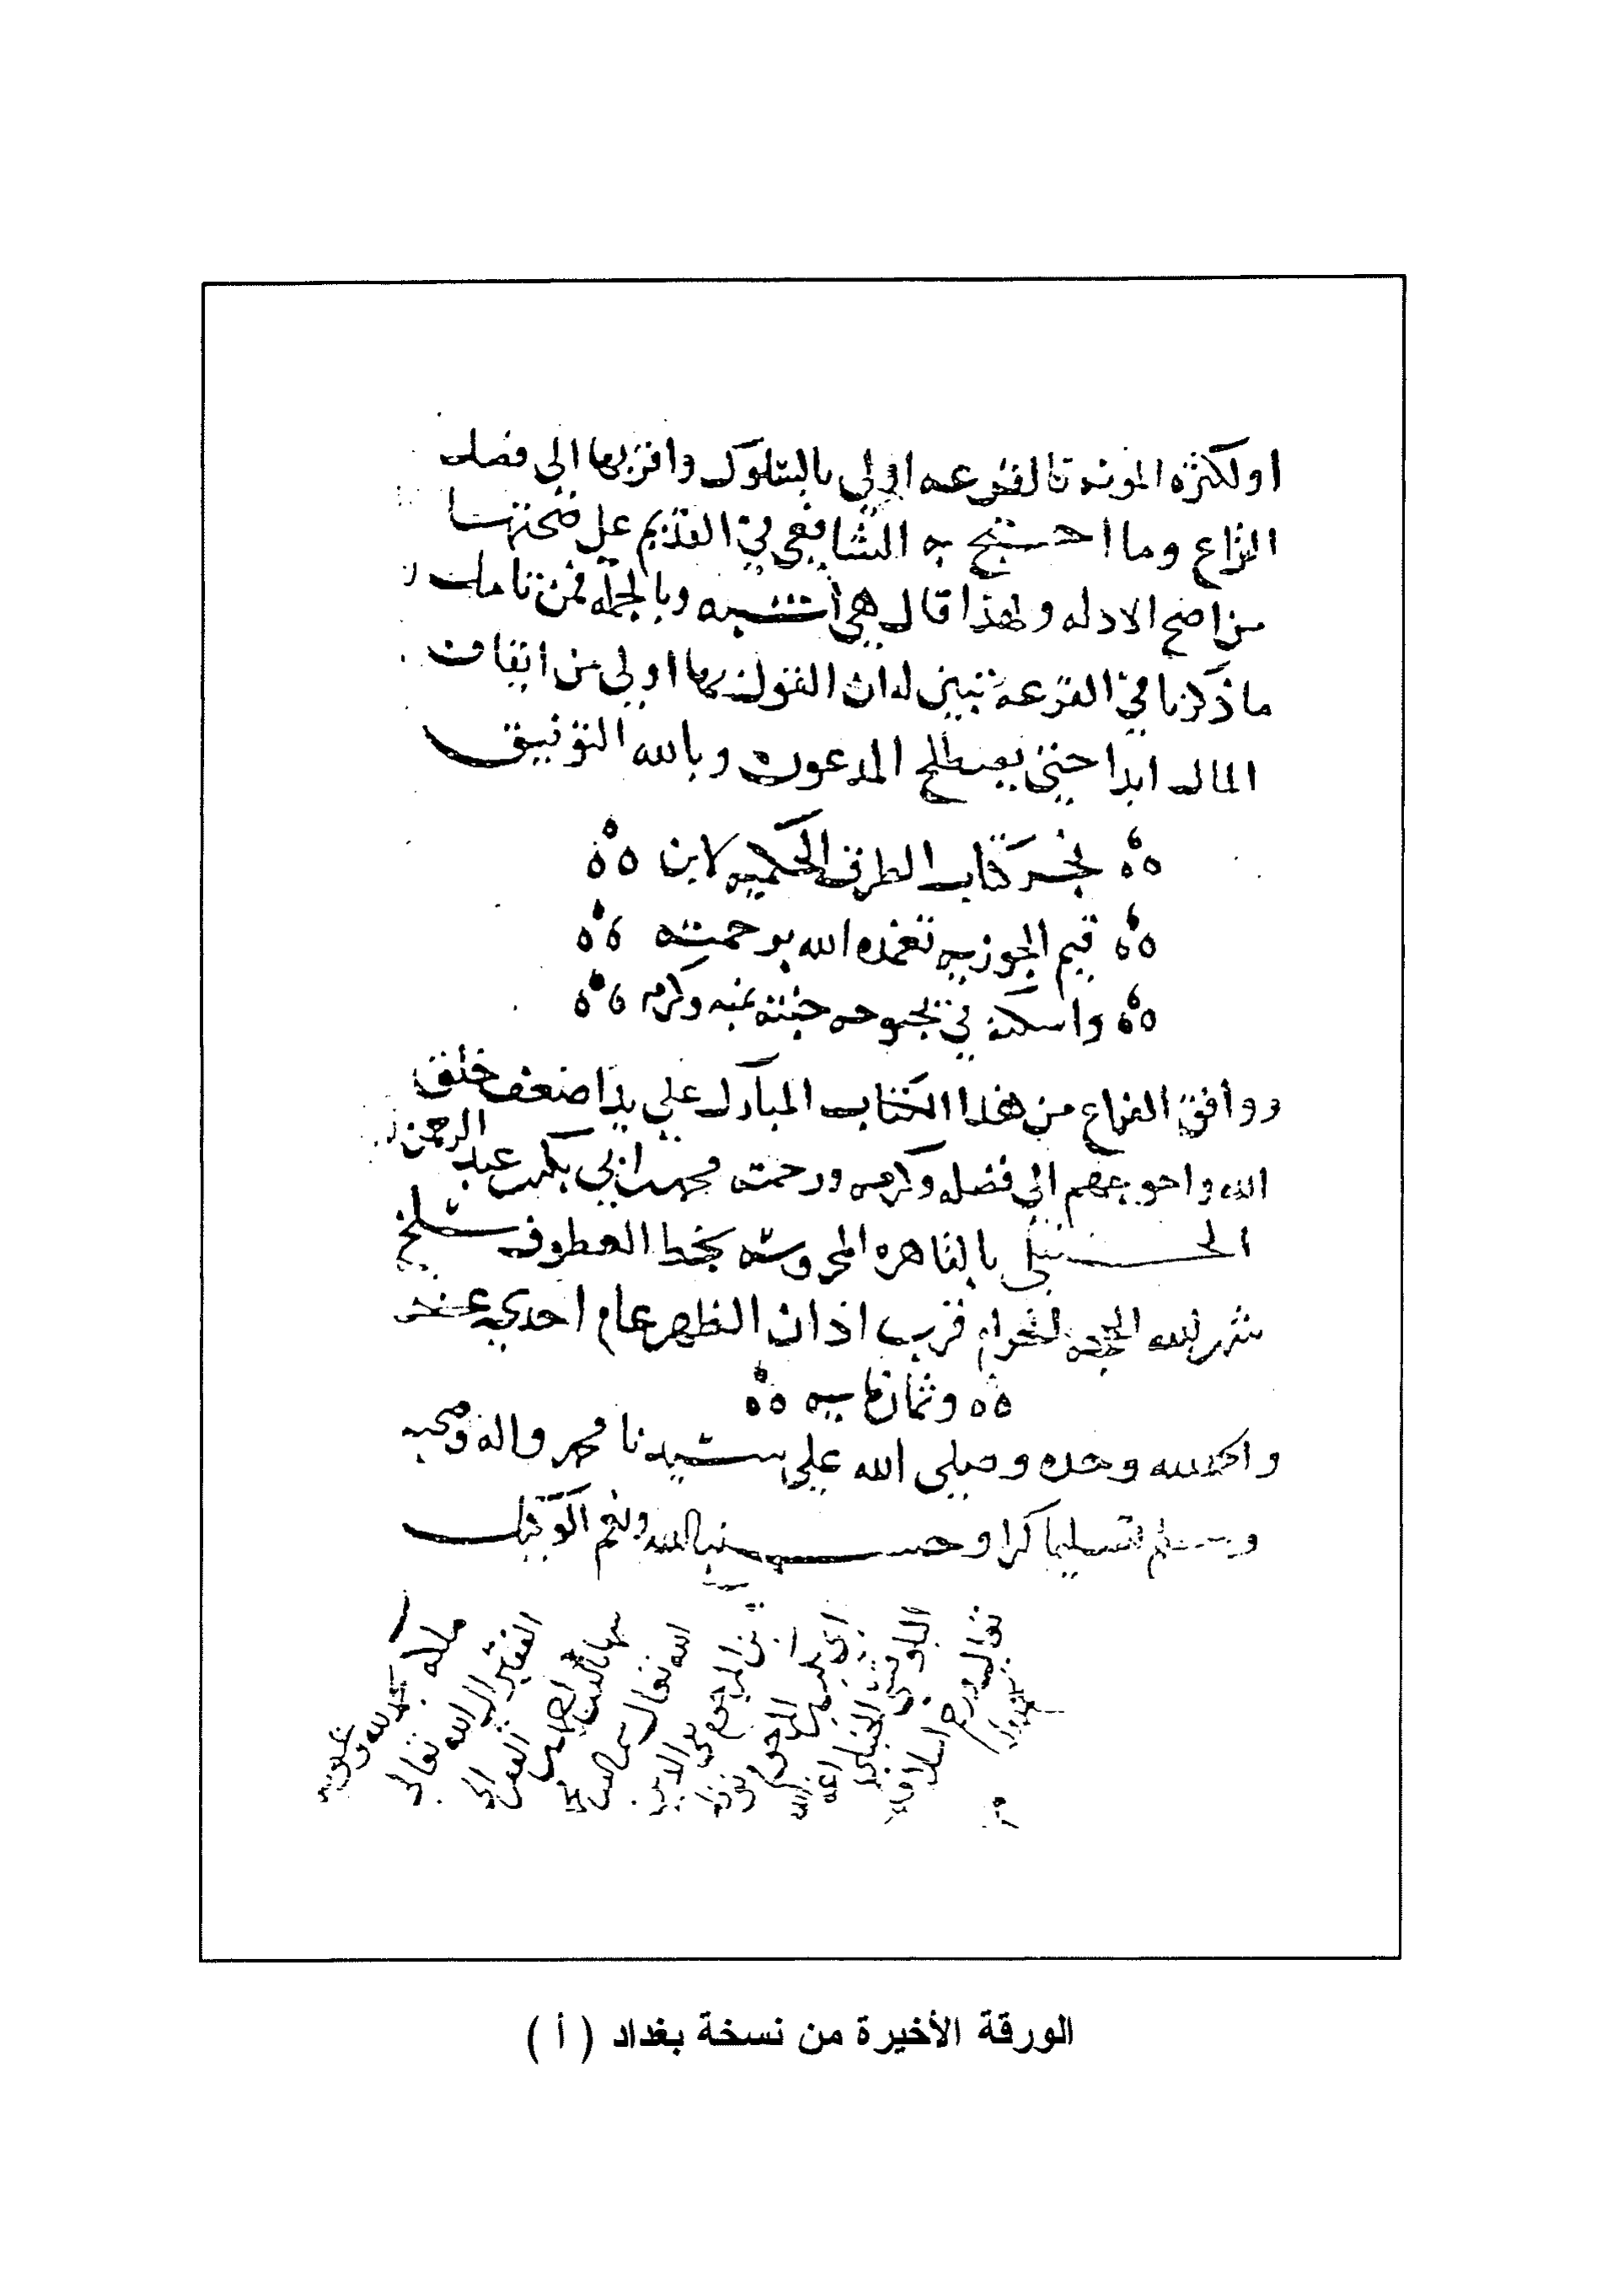 او لكثرة المونه فالقرعه اولى بالسلوك واقربها الى فصل
النزاع وما احتج به الشافعي في القديم على صحتها
من اصح الادله ولهذا قال هي اشبه وبالجمله فمن تامل
ما ذكرنا في القرعة تبين له ان القول بها اولى من ايقاف
المال ابدا حتى يصطلح المدعون وبالله التوفيق
نجز كتاب الطرق الحكميه لابن
قيم الجوزيه تغمده الله برحمته
واسكنه في بحبوحه جنته بمنه وكرمه
ووافق الفراغ من هذا الكتاب المبارك على يد اضعف خلق
الله واحوجهم الى فضله وكرمه ورحمته محمد بن ابي بكر بن عبد الرحمن
الحنبلي بالقاهره المحروسه بخط العطوف سلخ
شهر الله الحجه الحرام قرب اذان الظهر عام احدي عشر
وثمانمايه
والحمد لله وحده وصلى الله على سيدنا محمد واله وصحبه
وسلم تسليما كثيرا وحسبنا الله ونعم الوكيل
ملكه بحمد الله وعونه
الفقير الى الله تعالى
الله تعالى
الورقة الأخيرة من نسخة بغداد ( أ )